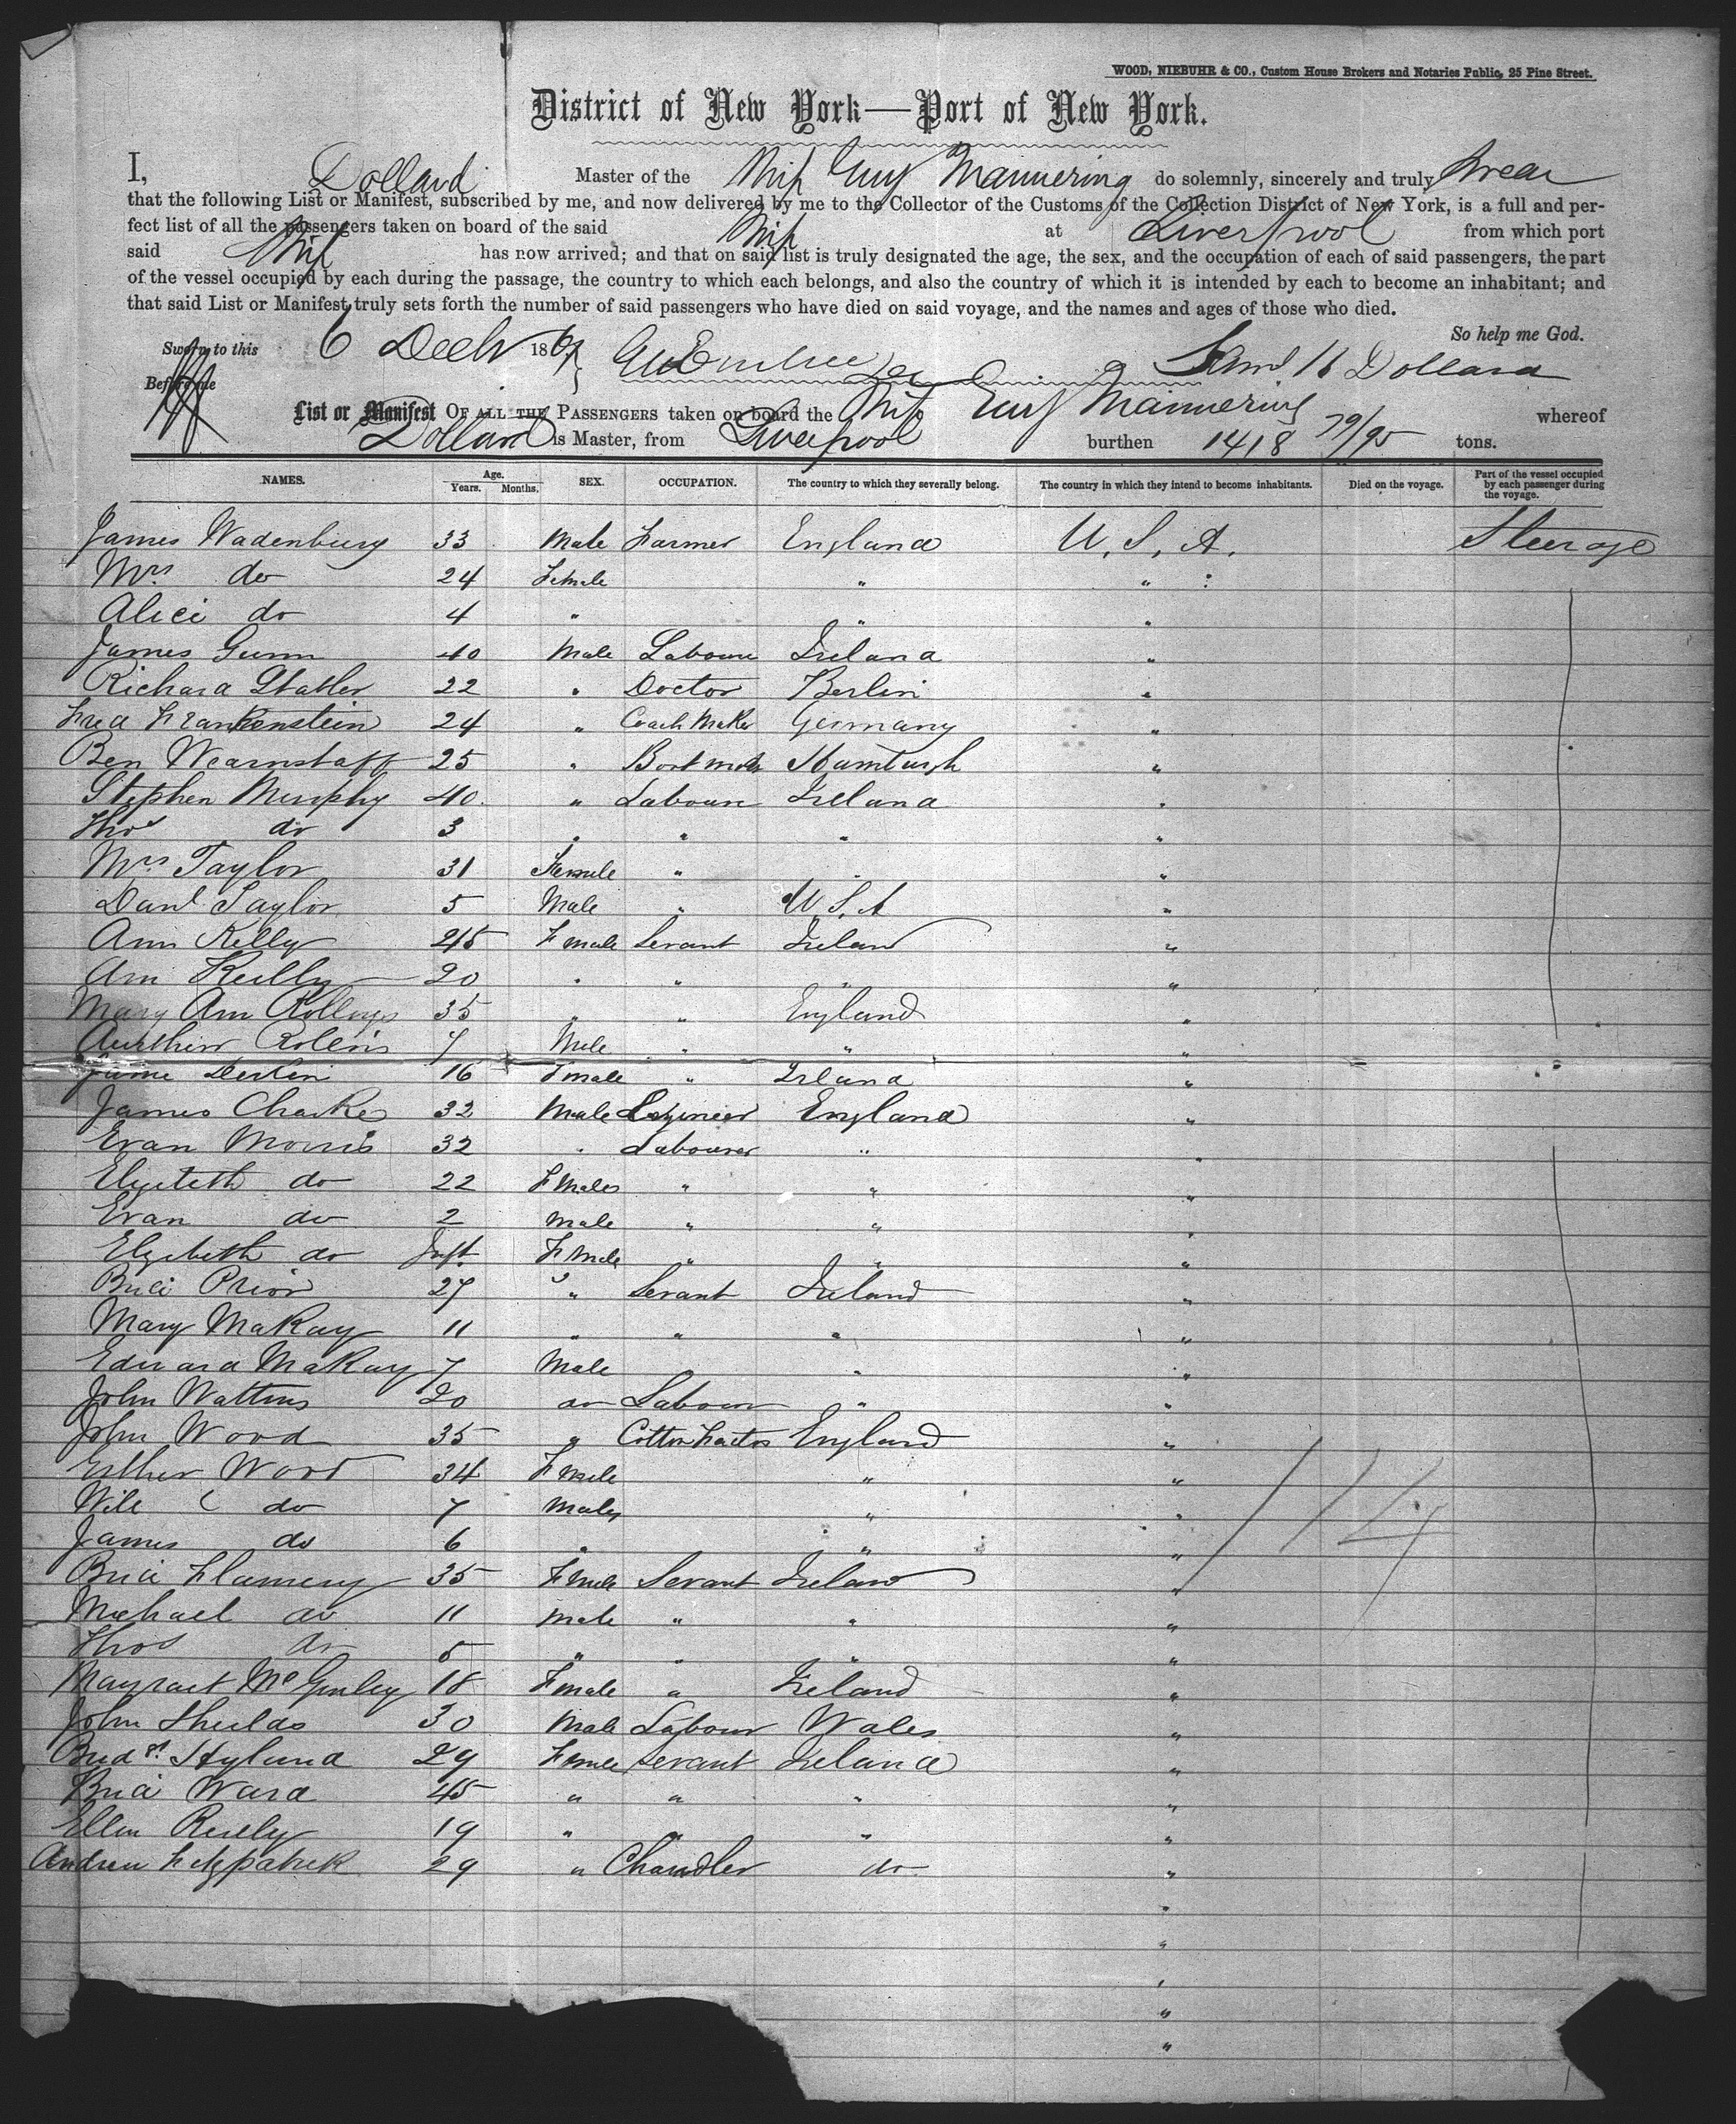 WOOD, NIEBUHR & CO., Custom House Brokers and Notaries Public, 25 Pine Street.
District of New York—Port of New York.
I, Dollard Master of the Ship Guy Mannering do solemnly, sincerely and truly swear
that the following List or Manifest, subscribed by me, and now delivered by me to the Collector of the Customs of the Collection District of New York, is a full and per-
fect list of all the passengers taken on board of the said Ship at Liverpool from which port
said Ship has now arrived; and that on said list is truly designated the age, the sex, and the occupation of each of said passengers, the part
of the vessel occupied by each during the passage, the country to which each belongs, and also the country of which it is intended by each to become an inhabitant; and
that said List or Manifest truly sets forth the number of said passengers who have died on said voyage, and the names and ages of those who died.
So help me God.
Sworn to this 6 Decbr 186 Dollard
Before me
List or Manifest OF ALL THE PASSENGERS taken on board the Ship Guy Mannering whereof
Dollard is Master, from Liverpool burthen 1418 79/95 tons.
NAMES. Age. Years. Months. SEX. OCCUPATION. The country to which they severally belong. The country in which they intend to become inhabitants. Died on the voyage. Part of the vessel occupied by each passenger during the voyage.
James Wadenburg 33 Male Farmer England U.S.A. Steerage
Mrs do 24 Female " "
Alice do 4 " " "
James Gunn 40 Male Labourer Ireland "
Richard 22 " Doctor Berlin "
Fred Frankenstein 24 " Coach Maker Germany "
Ben Wearnstaff 25 " Hamburgh "
Stephen Murphy 40 " Labourer Ireland "
Thos do 3 " " " "
Mrs Taylor 31 Female " " "
Danl Taylor 5 Male " U.S.A "
Ann Kelly Female Servant Ireland "
Ann Reilly 20 " " " "
Mary Ann Rollings 35 " " England "
Rolins 7 Male " " "
16 Female " Ireland "
James 32 Male Engineer England "
Evan Morris 32 " Labourer " "
Elizabeth do 22 Females " " "
Evan do 2 Male " " "
Elizabeth do Inft. Female " " "
Prior 27 " Servant Ireland "
Mary McKay 11 " " " "
Edward McKay 7 Male " "
John 20 do Labour " "
John Wood 35 " Cotton Factor England "
Esther Wood 34 Female " "
Will do 7 Males " "
James do 6 " " "
Flamery 35 Female Servant Ireland "
Michael do 11 Male " " "
Thos do 5 " " " "
Margraet McGinley 18 Female " Ireland "
John Shields 30 Male Labour Wales "
Bridgt Hyland 29 Female Servant Ireland "
Ward 45 " " " "
Ellen Reily 19 " " " "
Andrew Fitzpatrick 29 " Chandler do "
114